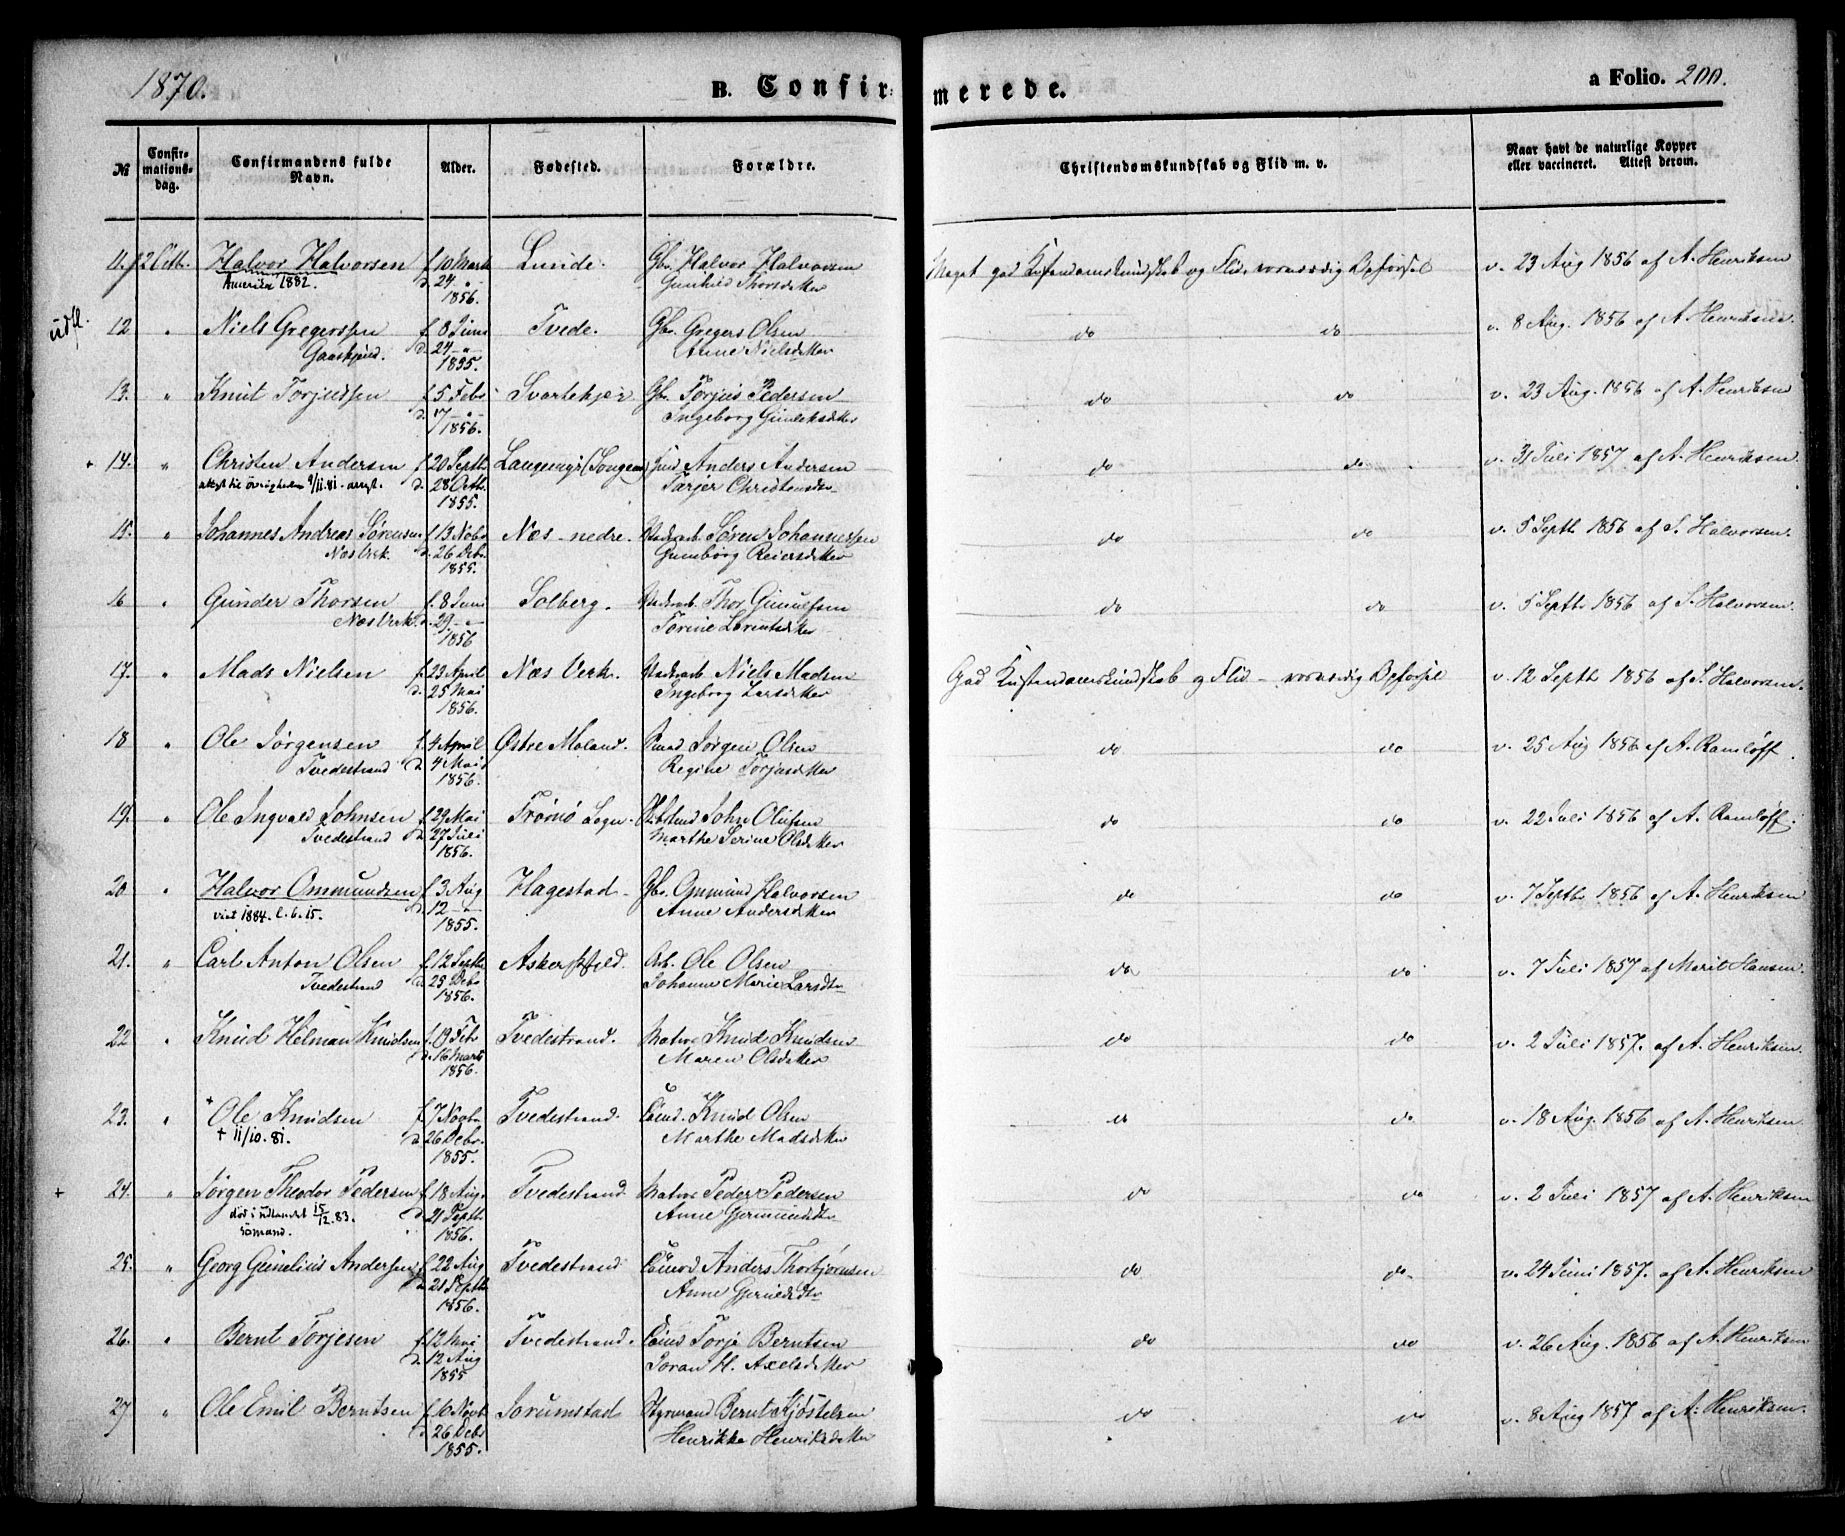 1870. B. Confirmerede. a Folio. 200.
№ Confirmationsdag. Confirmandens fulde Navn. Alder. Fødested. Forældre. Christendomskundskab og Flid m. v. Naar havt de naturlige Kopper eller vaccineret. Attest derom.
11. 2 Octb. Halvor Halvorsen f. 10 Marts Lunde. Gbr. Halvor Halvorsen Meget god Kristendomskundskab og Flid, vorværdig Opførsel v. 23 Aug 1856 af A. Henriksen
Amerika 1882. d. 24 " Gunhild Thorsdatter
1856.
udfl. 12 " Niels Gregersen f. 8 Juni Tvede. Gbr. Gregers Olsen do do v. 8 Aug. 1856 af A. Henriksen.
Gaaskjen. d. 24 - " Anne Nielsdatter
1855.
13. " Knut Torjussen f. 5 Febr Svartekjær Gbr. Torjus Pedersen do do v. 23 Aug. 1856 af A. Henriksen
d. 17 - " - Ingeborg Gunleksdatter
1856.
+ 14. " Christen Andersen f. 20 Septb Langemyr (Songe) Anders Andersen do do v. 31 Juli 1857 af A. Henriksen.
9/11.81. d. 28 Octb. Tarjer Christensdtr
1855.
15. " Johannes Andreas Sørensen f. 13 Novbr Næs - nedre. Søren Johannessen do do v. 5 Septb 1856 af S. Halvorsen.
Næs Verk. d. 26 Debr. Gunborg Reiersdatter
1855.
16 " Gunder Thorsen f. 8 Juni Solberg. Thor Gunulfsen do do v. 5 Septbr 1856 af S. Halvorsen.
Næs Verk d. 29 - " Torine Lorentsdatter
1856
17. " Mads Nielsen f. 23 April Næs Verk. Niels Madsen God Kristendomskundskab og Flid - vorværdig Opførsel v. 12 Septb 1856 af S. Halvorsen.
d. 25 Mai Ingeborg Larsdatter
1856.
18 " Ole Jørgensen f. 4 April Østre Moland. Jørgen Olsen do do v. 25 Aug 1856 af A. Ramløff.
Tvedestrand d. 4 Mai Regine Torjusdatter
1856.
19. " Ole Ingvald Johnsen f. 29 Mai Tromø Sogn. John Olufsen do do v. 22 Juli 1856 af A. Ramløff.
Tvedestrand d. 27 Juli Marthe Serine Olsdatter
1856.
20 " Halvor Ommundsen f. 3 Aug Hagestad - Gbr. Ommund Halvorsen do do v. 7 Septbr 1856 af A. Henriksen
viet 1884. l. 6. 15. d. 12 - " Anne Andersdatter
1855.
21. " Carl Anton Olsen f. 12 Septb Askerskjeld. Arb. Ole Olsen do do v. 7 Juli 1857 af Marit Hansen.
Tvedestrand d. 25 Debr Johanne Marie Larsdtr
1856.
22 " Knud Helman Knudsen f. 19 Feb Tvedestrand. Matros Knud Knudsen do do v. 2 Juli 1857. af A. Henriksen.
d. 16 Marts Maren Olsdatter
1856.
23. " + Ole Knudsen f. 7 Novbr Tvedestrand. Knud Olsen do do v. 18 Aug. 1856 af A. Henriksen
+ 11/10. 81. d. 26 Debr. Marthe Madsdatter
1855.
+ 24. " Jørgen Theodor Pedersen f. 18 Aug. Tvedestrand Matros Peder Pedersen do do v. 2 Juli 1857 af A. Henriksen
død i udlandet 15/12.83. d. 21 Septb. Anne Gjermundsdtr
sömand. 1856.
25. " Georg Gunelius Andersen f. 22 Aug Tvedestrand Anders Thorbjørnsen do do. v. 24 Juni 1857. af A. Henriksen
d. 21 Septb Anne Gjerulfsdtr
1856.
26. " Bernt Torjesen f. 12 Mai Tvedestrand. Torje Berntsen do do v. 26 Aug. 1856 af A. Henriksen
d. 12 Aug Joran H. Axelsdatter
1855
27 " Ole Emil Berntsen f. 10 Novb Sorumstad Styrmand Bernt Kjøstelsen do do v. 8 Aug 1857 af A. Henriksen.
d. 26 Debr Henrikke Henriksdatter
1855.